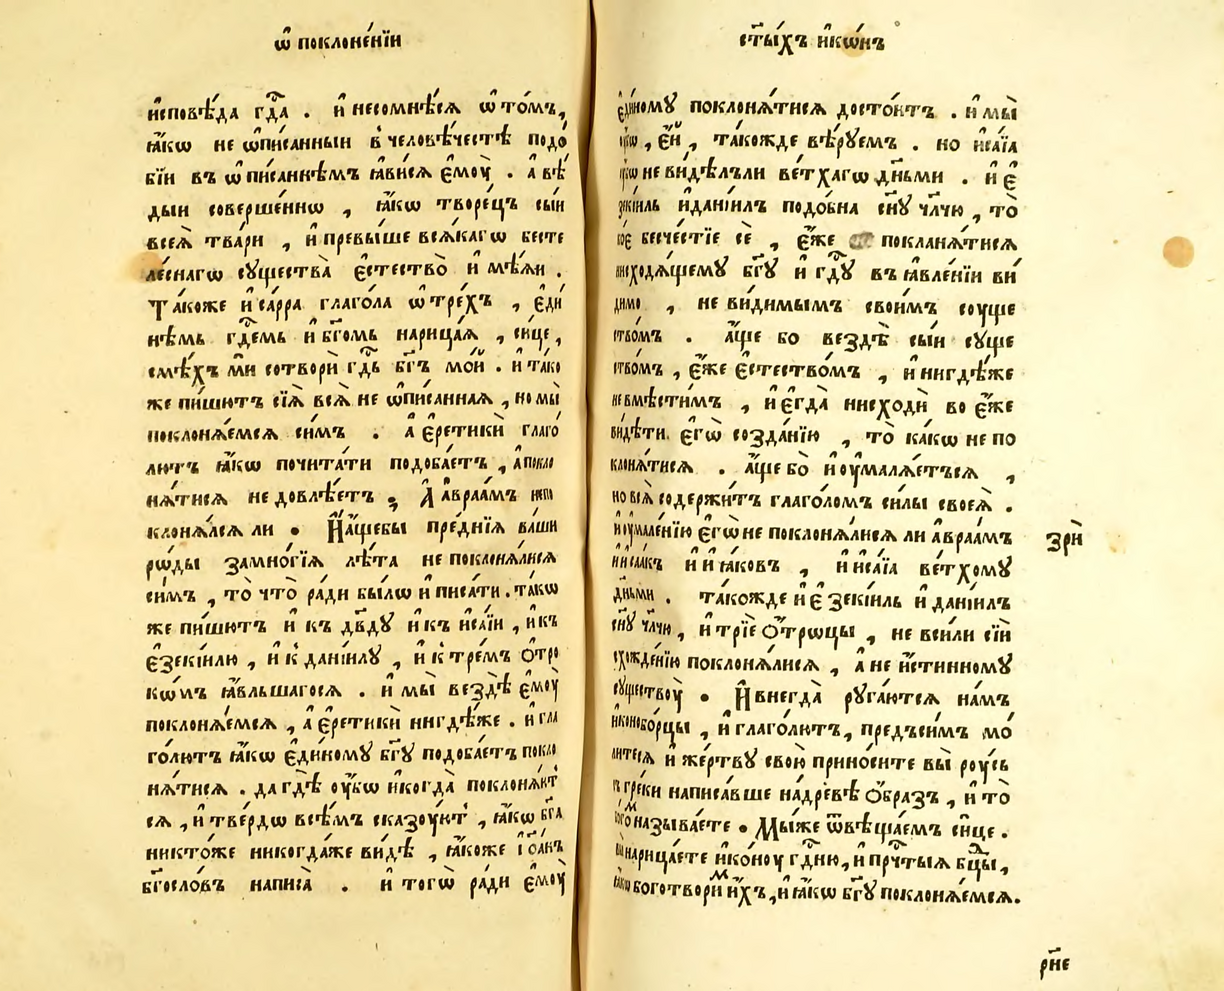 ѡ҆ поклоне́нїи
и҆сповѣ́да гдⷭ҇а . и҆ несомнѣ́сѧ ѡ҆ то́мъ,
ꙗ҆́кѡ не ѡ҆пи́санныи в̾ человѣ́чествѣ подо́
бїи въ ѡ҆писаннѣмъ ꙗ҆ви́сѧ є҆моу̀ . а вѣ́
дыи соверше́ннѡ , ꙗ҆́кѡ творе́цъ сы́и
всеѧ̀ тва́ри , и҆ превы́ше всѧ́кагѡ бесте
ле́снагѡ сꙋщества̀ є҆стество̀ и҆ мѣ́ѧи .
Та́коже и҆ са́рра глаго́ла ѡ҆ тре́хъ , є҆ди
нѣмъ гдⷭ҇емь и҆ бг҃омь нарица́ѧ , си́це ,
смѣ́хъ мѝ сотворѝ гдⷭ҇ь бг҃ъ мо́й . и҆ та́ко
же пи́шютъ сїѧ̀ всѧ̀ не ѡ҆пи́саннаѧ , но мы̀
поклонѧ́емсѧ си́мъ . а҆ є҆ретикѝ глаго́
лютъ ꙗ҆́кѡ почита́ти подоба́етъ , а҆ покло
нѧ́тисѧ не довлѣ́етъ ; А҆ а҆враа́мъ непо
клонѧ́лсѧ ли . И҆ а҆́щебы пре́днїѧ ва́ши
рѡ́ды замно́гїѧ лѣ́та не поклонѧ́лисѧ
си́мъ , то̀ что̀ ра́ди бы́лѡ и҆ писа́ти . та́кѡ
же пи́шютъ и҆ къ дв҃дꙋ и҆ къ и҆са́їи , и҆ къ
є҆зекі́илю , и҆ к̾ данїи́лꙋ , и҆ к̾ тре́мъ ѻ҆тро
кѡ́мъ ꙗ҆́вльшагосѧ . и҆ мы̀ вездѣ̀ є҆моу̀
поклонѧ́емсѧ , а҆ є҆ретикѝ нигдѣ́же . и҆ гла
го́лютъ ꙗ҆́кѡ є҆ди́номꙋ бг҃ꙋ подоба́етъ покло
нѧ́тисѧ . да гдѣ̀ оу҆́бѡ и҆когда̀ поклонѧ́ют̾
сѧ , и҆ тве́рдѡ всѣ́мъ сказоу́ют̾ , ꙗ҆́кѡ бг҃а
никто́же никогда́же ви́дѣ , ꙗ҆́коже і҆ѡа́нъ
бг҃осло́въ написа̀ . и҆ тогѡ̀ ра́ди є҆моу̀
ст҃ы́хъ и҆кѡ́нъ
є҆ди́номꙋ поклонѧ́тисѧ досто́итъ . и҆ мы̀
, є҆́й , та́кожде вѣ́рꙋемъ . но и҆са́їа
не ви́дѣлъли ве́тхагѡ де́ньми . и҆ є҆
зекі́иль и҆ данїи́лъ подо́бна сн҃ꙋ чл҃чю , то̀
бесче́стїе сѐ , є҆́же покланѧ́тисѧ
нисходѧ́щемꙋ бг҃ꙋ и҆ гдⷭ҇ꙋ въ ꙗ҆вле́нїи ви́
димо , не ви́димымъ свои́мъ соуще
ство́мъ . а҆́ще бо вездѣ̀ сы́и сꙋще
ство́мъ , є҆́же є҆стество́мъ , и҆ нигдѣ́же
невмѣсти́мъ , и҆ є҆гда̀ нисходѝ во є҆́же
ви́дѣти є҆гѡ̀ созда́нїю , то̀ ка́кѡ не по
клонѧ́тисѧ . а҆́ще бо̀ и҆ оу҆малѧ́етъсѧ ,
но всѧ̀ содержи́тъ глаго́ломъ си́лы своеѧ̀ .
и҆ оу҆мале́нїю є҆гѡ̀ не поклонѧ́лисѧ ли а҆враа́мъ
зрѝ
и҆ и҆саакъ и҆ и҆ꙗ҆́ковъ , и҆ и҆са́їа ве́тхомꙋ
де́ньми . та́кожде и҆ є҆зекі́иль и҆ данїи́лъ
сн҃ꙋ чл҃чю , и҆ трїѐ ѻ҆́троцы , не всѝли сїй
схожде́нїю поклонѧ́лисѧ , а҆ не и҆́стинномꙋ
сꙋществоу̀ . И҆ внегда̀ рꙋга́ютсѧ на́мъ
и҆конобо́рцы , и҆ глаго́лютъ , предъси́мъ мо́
литесѧ и҆ же́ртвꙋ свою̀ прино́сите вы̀ роу́сь
гре́ки написа́вше на́древѣ ѻ҆́бразъ , и҆ то
называ́ете . Мы́же ѿвѣща́емъ си́це .
нарица́ете и҆ко́ноу гдⷭ҇ню , и҆ прⷱ҇тыѧ бцⷣы ,
боготвори́м и҆́хъ , и҆ ꙗ҆́кѡ бг҃ꙋ поклонѧ́емсѧ .
рн҃е